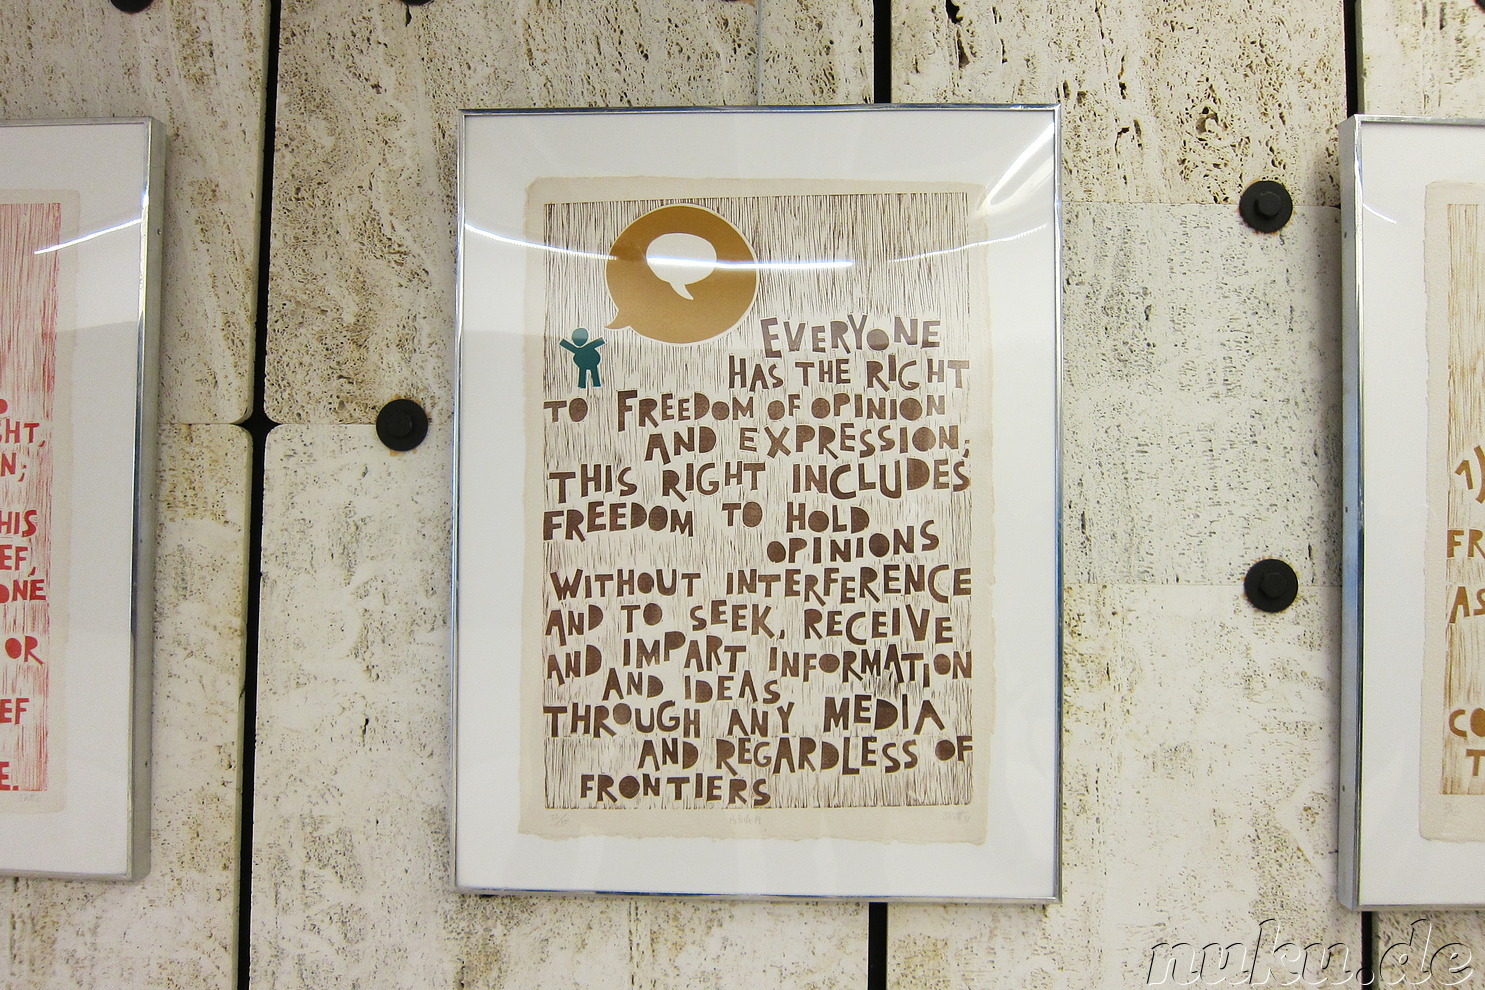 EVERYONE
HAS THE RIGHT
TO FREEDOM OF OPINION
AND EXPRESSION;
THIS RIGHT INCLUDES
FREEDOM TO HOLD
OPINIONS
WITHOUT INTERFERENCE
AND TO SEEK, RECEIVE
AND IMPART INFORMATION
AND IDEAS
THROUGH ANY MEDIA
AND REGARDLESS OF
FRONTIERS
Article 19
OR
1)
nuku.de